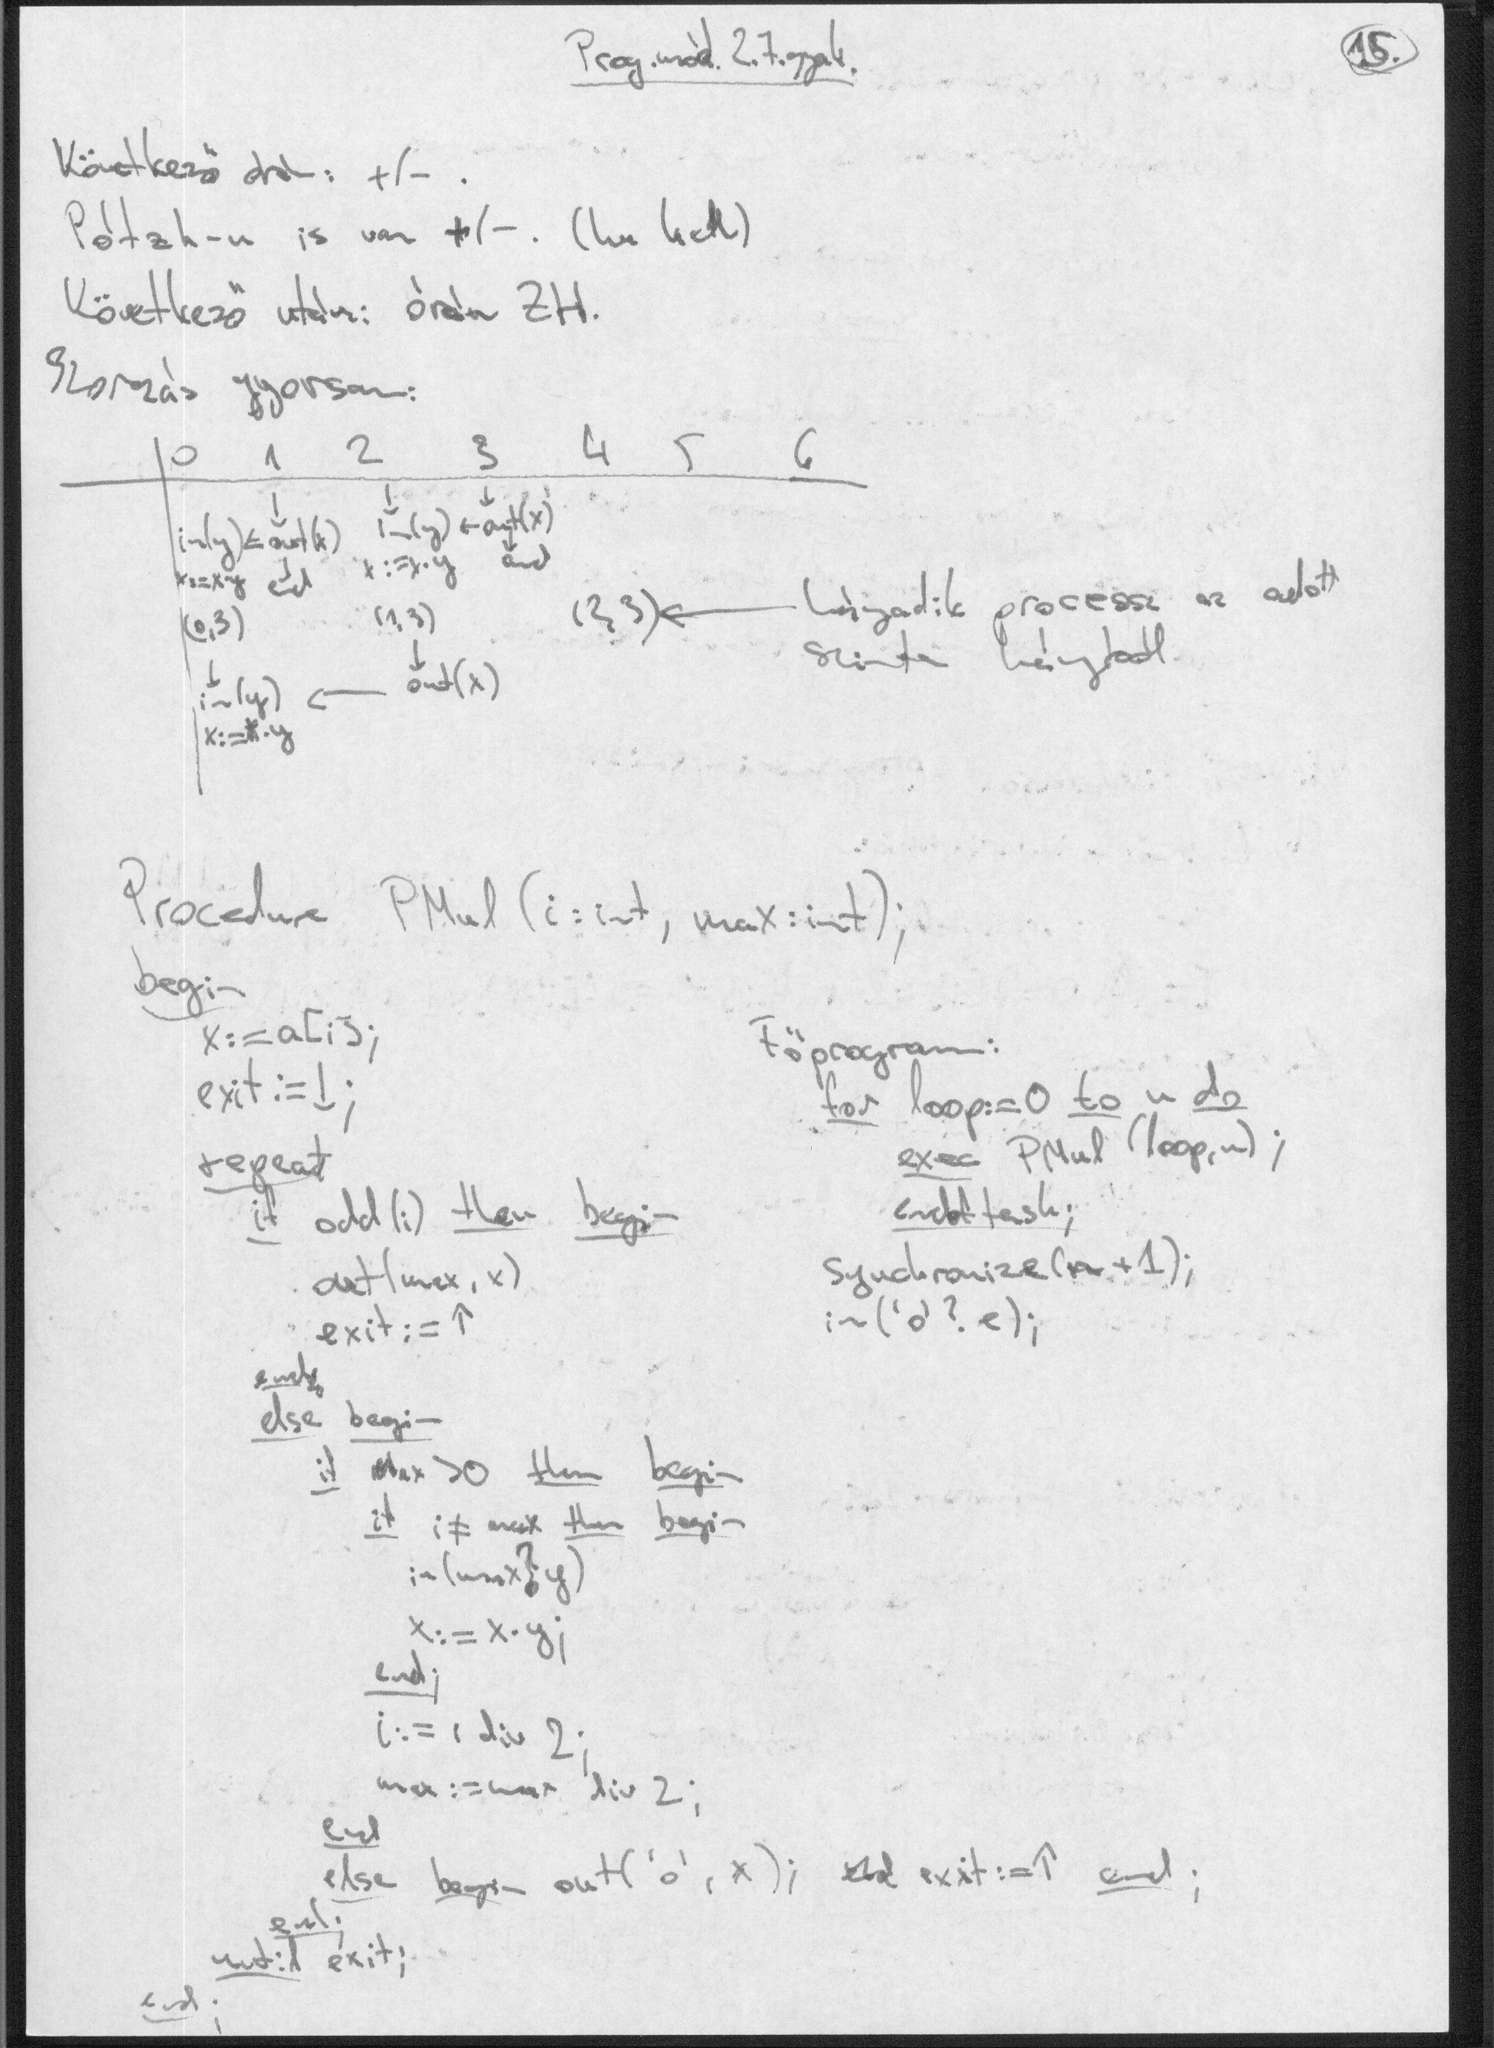 Prog.mód. 2. 7. gyak.
15.
Következő órán: +/- .
Pótzh-n is van +/-. (ha kell)
Következő után: órán ZH.
Szorzás gyorsan:
0 1 2 3 4 5 6
↓ ↓ ↓
in(y) ← out(x) in(y) ← out(x)
x:=x·y end x:=x·y end
(0,3) (1,3) (2,3) ← hányadik processz az adott
szinten hányból
↓ ↓
in(y) ← out(x)
x:=x·y
Procedure PMul (i:int, max:int);
begin
x:=a[i];
exit:=↓;
repeat
if odd(i) then begin
out(max, x)
exit:=↑
end
else begin
if max >0 then begin
if i≠ max then begin
in(max?y)
x:=x·y;
end;
i:=i div 2;
max:=max div 2;
end
else begin out('o', x); exit:=↑ end;
end;
until exit;
end;
Főprogram:
for loop:=0 to n do
exec PMul (loop,n);
endtask;
synchronize(n+1);
in('o'?e);